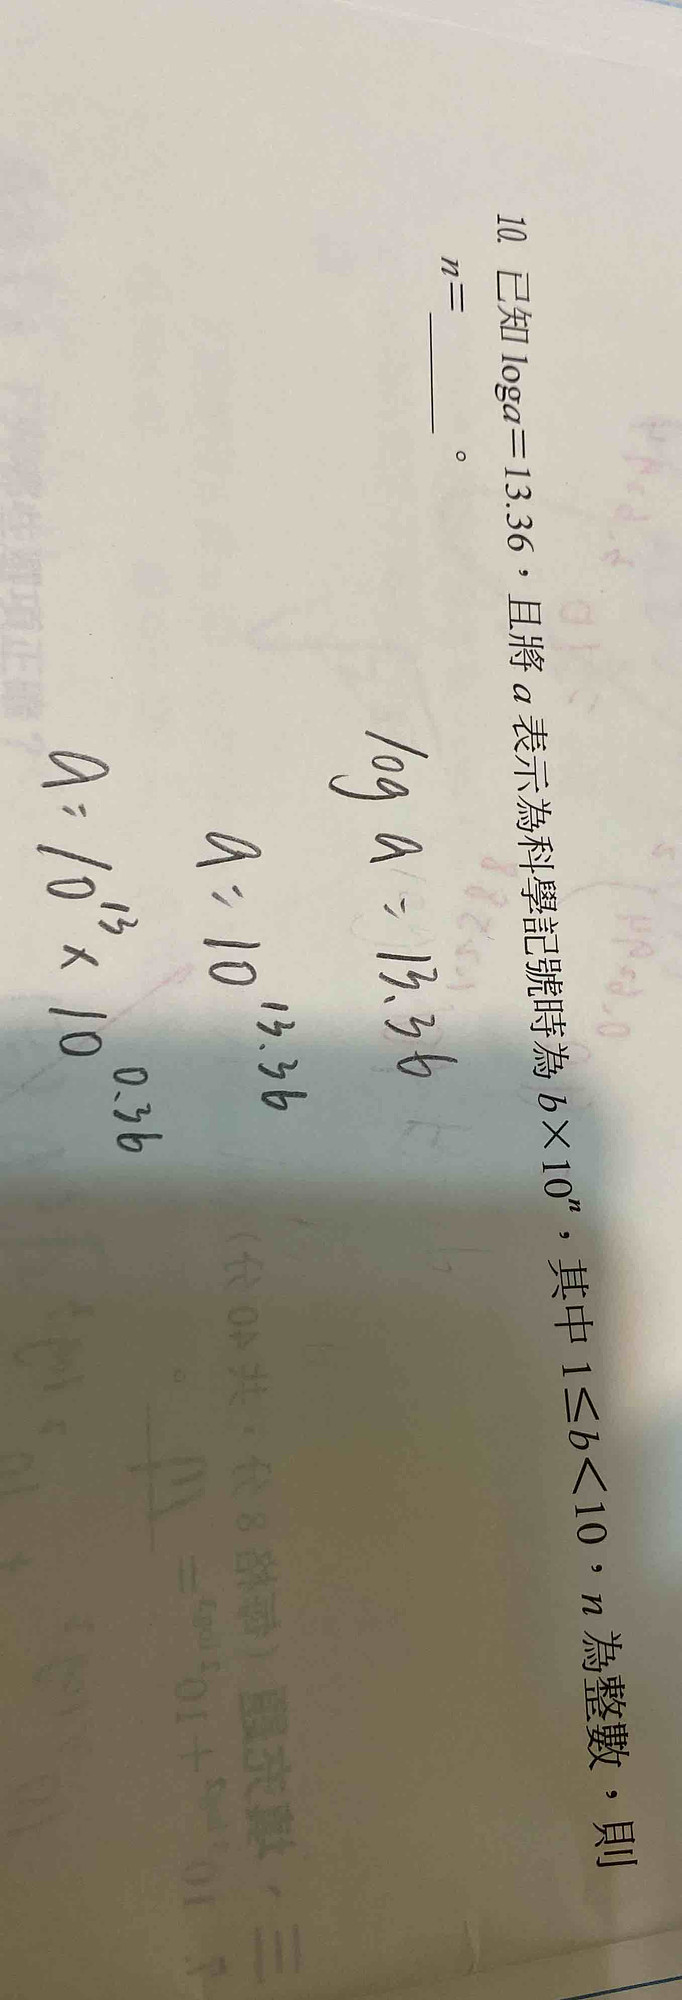 10. 已知 loga=13.36，且將 a 表示為科學記號時為 b×10ⁿ，其中 1≤b<10，n 為整數，則
n=＿＿＿。
log a = 13.36
a = 10^13.36
a = 10^13 × 10^0.36